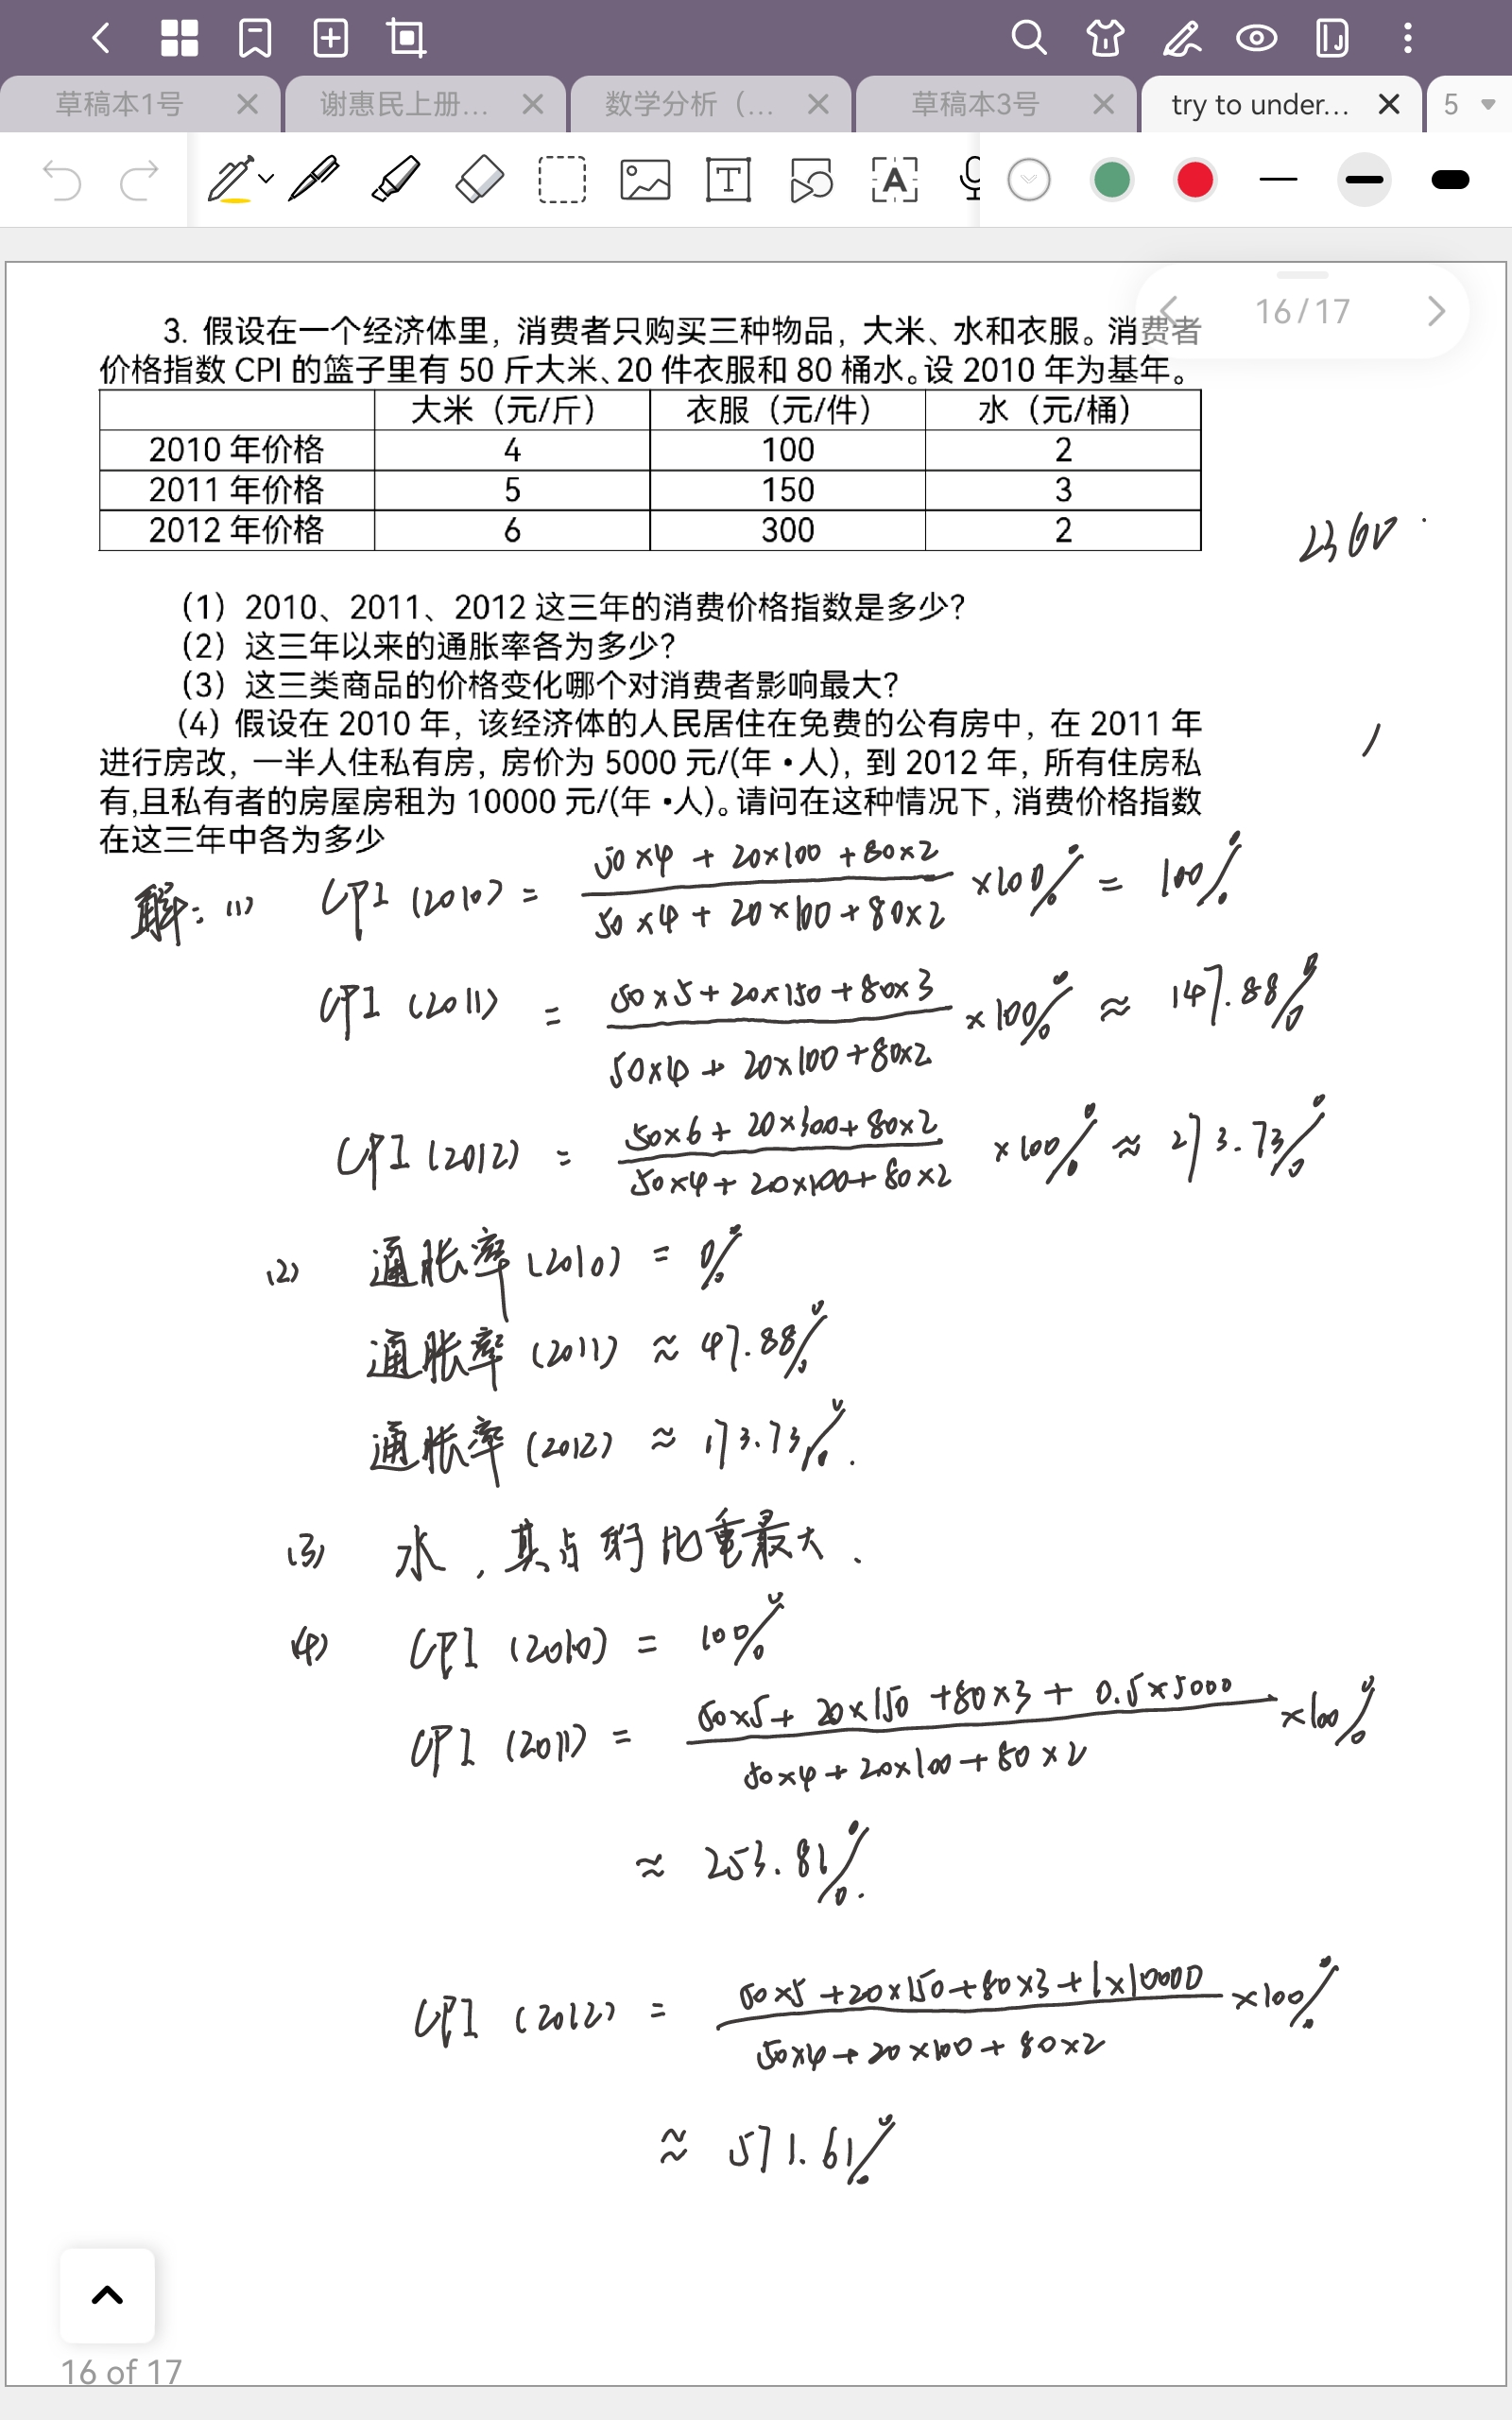 草稿本1号 × 谢惠民上册... × 数学分析（... × 草稿本3号 × try to under... × 5
16/17
3. 假设在一个经济体里，消费者只购买三种物品，大米、水和衣服。消费者
价格指数 CPI 的篮子里有 50 斤大米、20 件衣服和 80 桶水。设 2010 年为基年。
大米（元/斤） 衣服（元/件） 水（元/桶）
2010 年价格 4 100 2
2011 年价格 5 150 3
2012 年价格 6 300 2
2360
（1）2010、2011、2012 这三年的消费价格指数是多少？
（2）这三年以来的通胀率各为多少？
（3）这三类商品的价格变化哪个对消费者影响最大？
（4）假设在 2010 年，该经济体的人民居住在免费的公有房中，在 2011 年
进行房改，一半人住私有房，房价为 5000 元/(年·人)，到 2012 年，所有住房私
有,且私有者的房屋房租为 10000 元/(年·人)。请问在这种情况下，消费价格指数
在这三年中各为多少
解: (1) CPI (2010) = (50×4 + 20×100 + 80×2)/(50×4 + 20×100 + 80×2) ×100% = 100%
CPI (2011) = (50×5 + 20×150 + 80×3)/(50×4 + 20×100 + 80×2) ×100% ≈ 147.88%
CPI (2012) = (50×6 + 20×300 + 80×2)/(50×4 + 20×100 + 80×2) ×100% ≈ 273.73%
(2) 通胀率 (2010) = 0%
通胀率 (2011) ≈ 47.88%
通胀率 (2012) ≈ 173.73%.
(3) 水，其占的比重最大.
(4) CPI (2010) = 100%
CPI (2011) = (50×5 + 20×150 + 80×3 + 0.5×5000)/(50×4 + 20×100 + 80×2) ×100%
≈ 253.81%.
CPI (2012) = (50×5 + 20×150 + 80×3 + 1×10000)/(50×4 + 20×100 + 80×2) ×100%
≈ 571.61%
16 of 17